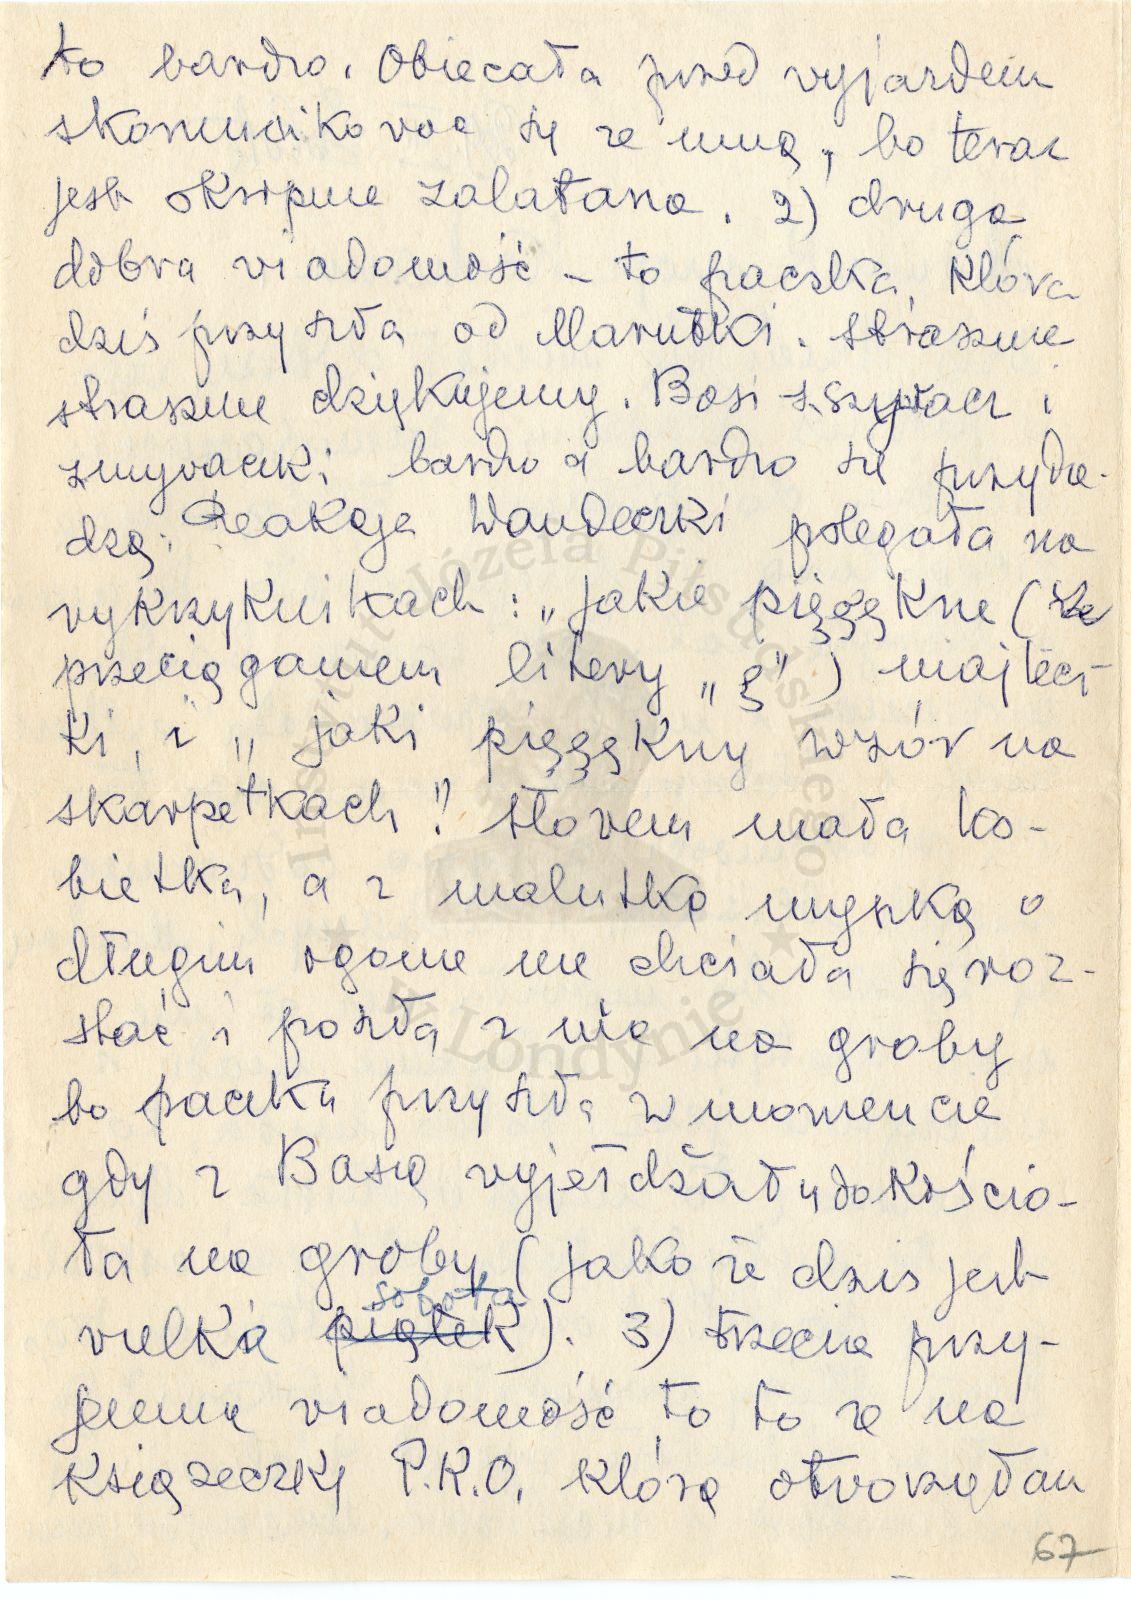 to bardzo. Obiecała przed vyjazdem
skomunikovać się ze mną, bo teraz
jest okropnie zalatana. 2) druga
dobra viadomość – to paczka, która
dziś przyszła od Marutki. Strasznie
strasznie dziękujemy. Basi
zmyvaczki bardzo a bardzo się przyda-
dzą. Reakcja Wandeczki polegała na
vykrzyknikach: „jakie pięęękne (ze
przeciąganiem litery „ę") majtecz-
ki, i „jaki pięęękny wzór na
skarpetkach!" Słovem mała ko-
bietka, a z malutką myszką o
długim ogonie nie chciała się roz-
stać i poszła z nią na groby
bo paczka przyszła w momencie
gdy z Basią vyjeżdżały do kościo-
ła na groby (jako że dziś jest
sobota
vielka piątek). 3) trzecia przy-
jemna viadomość to to że na
książeczkę P.K.O. którą otvorzyłam
67
Instytut Józefa Piłsudskiego
★ w Londynie ★